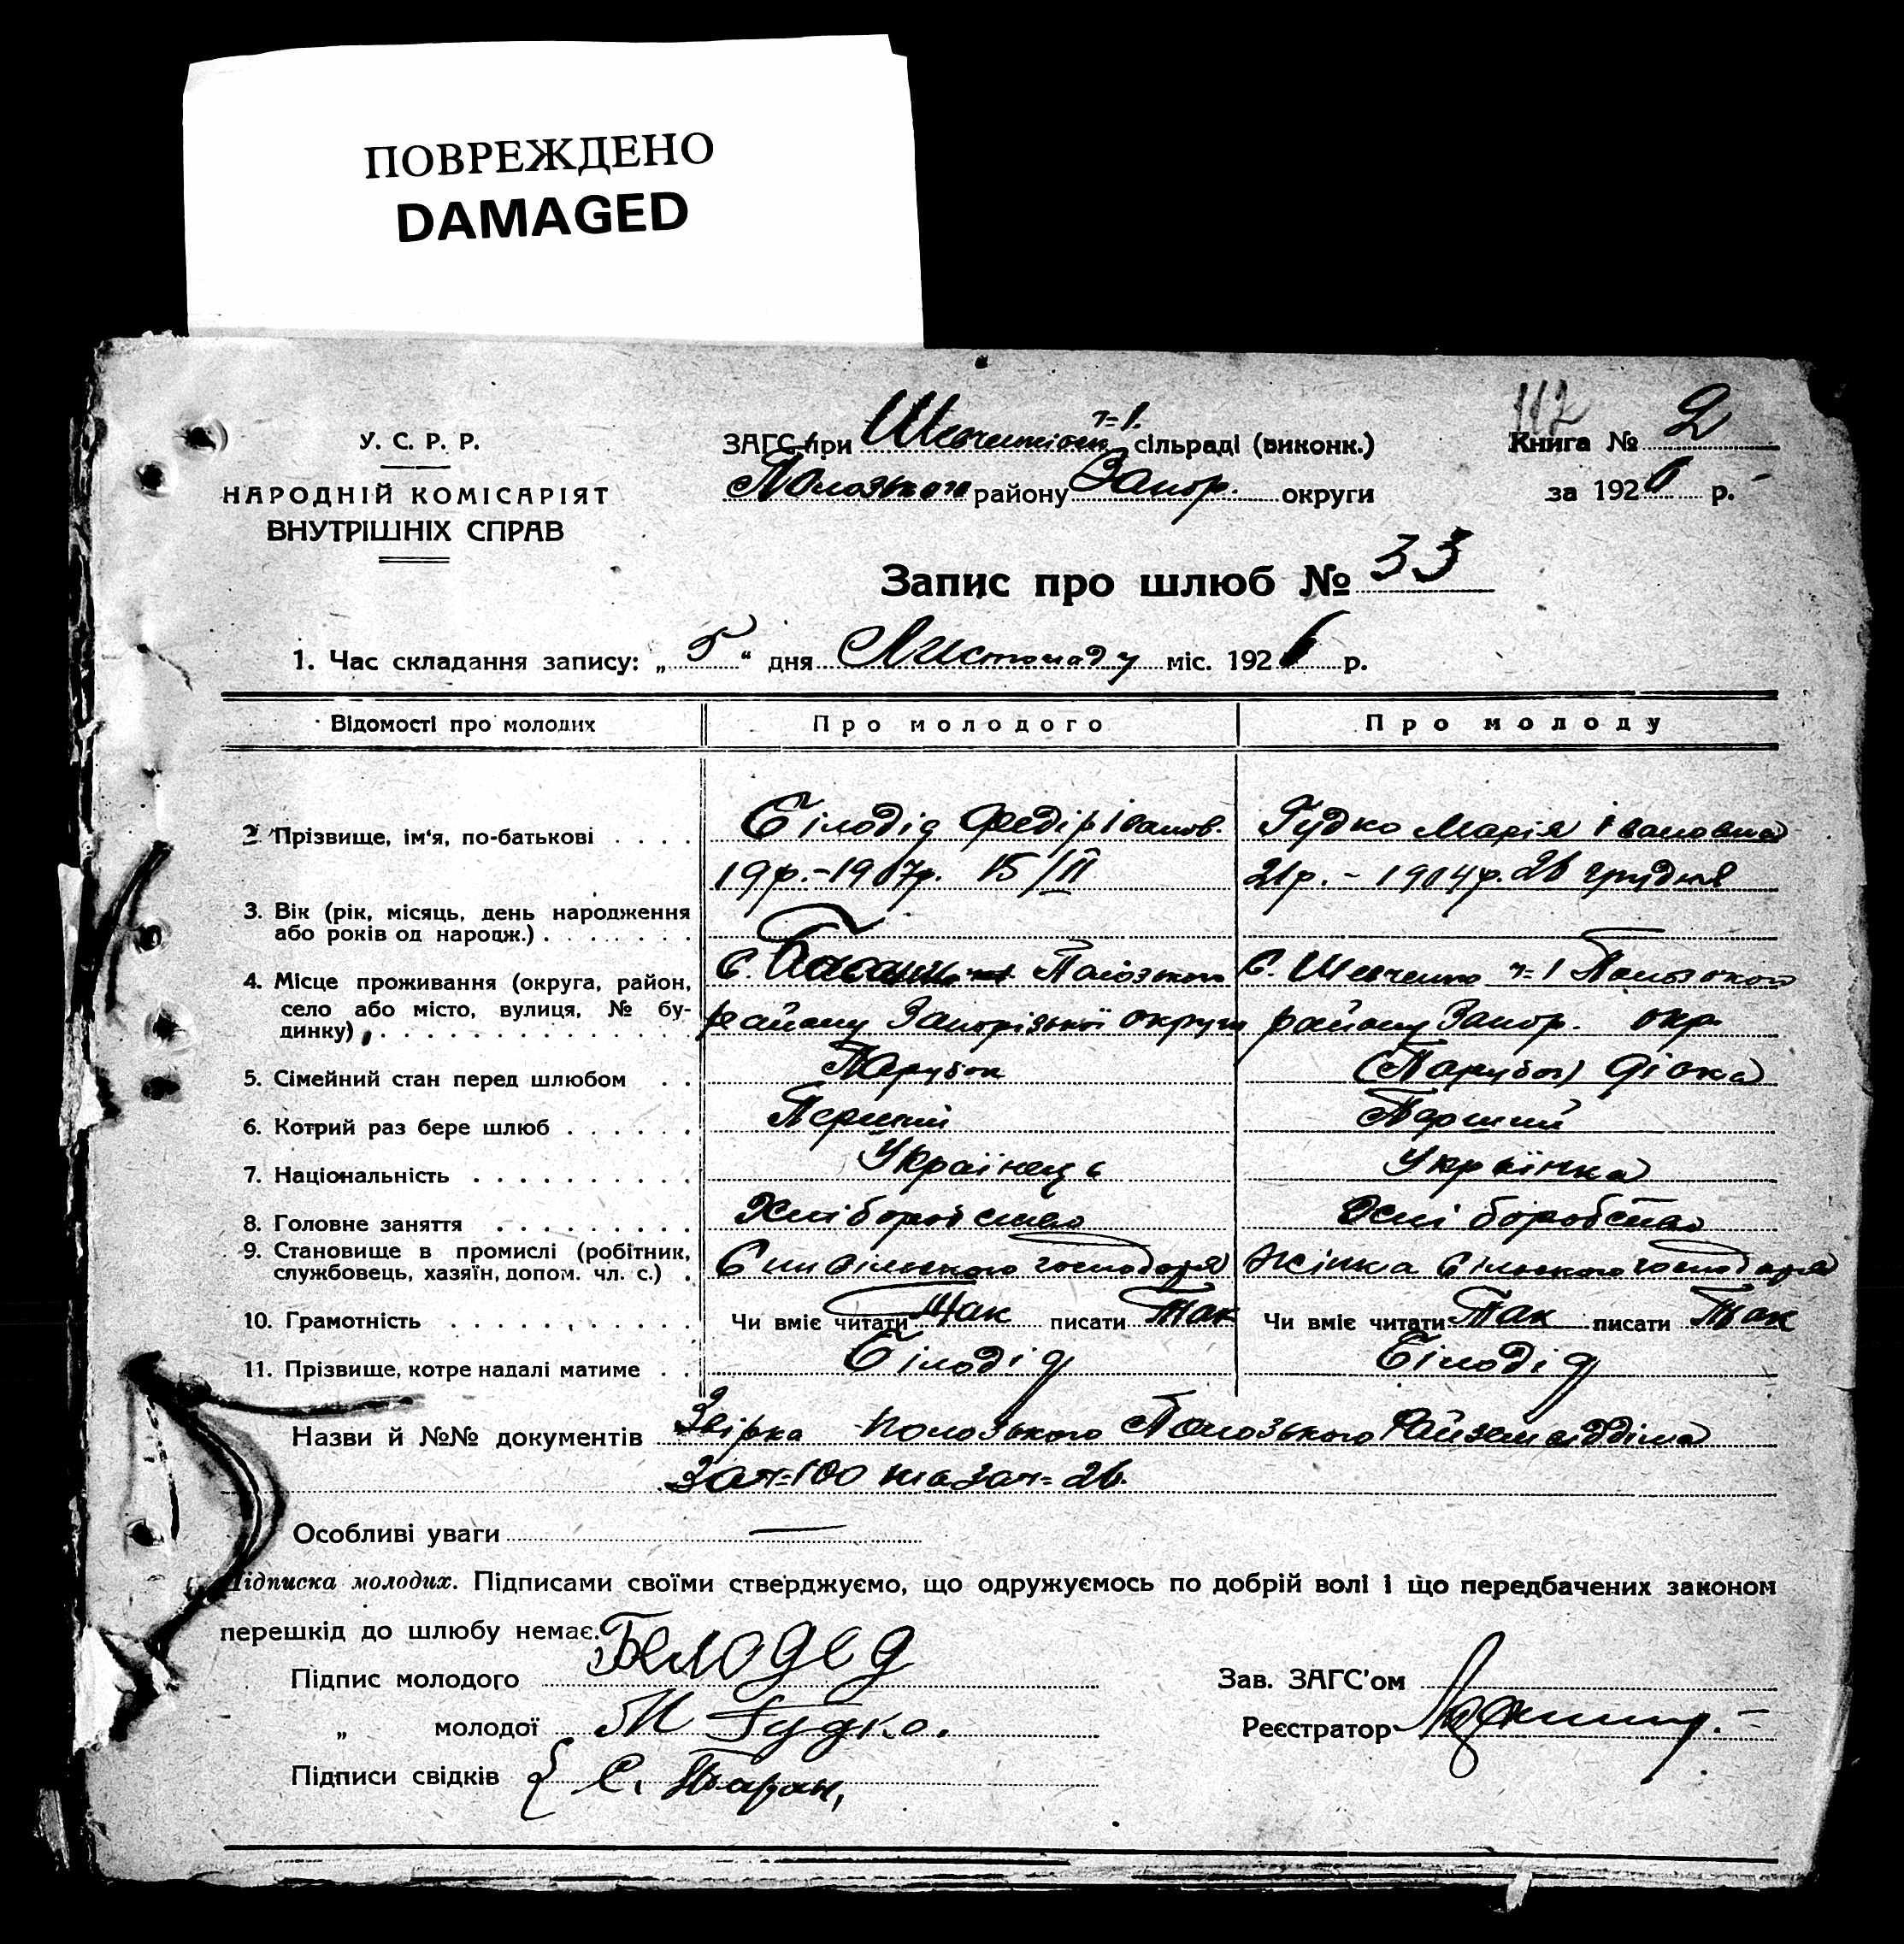 ПОВРЕЖДЕНО
DAMAGED
112
У. С. Р. Р.
НАРОДНІЙ КОМІСАРІЯТ
ВНУТРІШНІХ СПРАВ
ЗАГС при Шевченківськ. ч=1. сільраді (виконк.)
Пологського району Запор. округи
Книга № 2
за 1926 р.
Запис про шлюб № 33
1. Час складання запису: „5“ дня Листопаду міс. 1926 р.
Відомості про молодих Про молодого Про молоду
2 Прізвище, ім'я, по-батькові . . . . Білодід Федір Іванов. Гудко Марія Івановна
19 р. - 1907 р. 15/II 21 р. - 1904 р. 26 грудня
3. Вік (рік, місяць, день народження
або років од народж.) . . . . . . .
4. Місце проживання (округа, район, С. Полозького С. Шевченко ч=1 Полозького
село або місто, вулиця, № бу- району Запорізької округи району Запор. окр.
динку) . . . . . . . . . . . . . .
5. Сімейний стан перед шлюбом . . Парубок (Парубок) Дівка
6. Котрий раз бере шлюб . . . . . . Перший Перший
7. Національність . . . . . . . . . . Українець Українка
8. Головне заняття . . . . . . . . . Хліборобство Хліборобство
9. Становище в промислі (робітник, Син сільського господаря Жінка сільського господаря
службовець, хазяїн, допом. чл. с.) .
10. Грамотність . . . . . . . . . . . Чи вміє читати Так писати Так Чи вміє читати Так писати Так
11. Прізвище, котре надалі матиме . . Білодід Білодід
Назви й №№ документів Полозького Полозького
100 26.
Особливі уваги —
Підписка молодих. Підписами своїми стверджуємо, що одружуємось по добрій волі і що передбачених законом
перешкід до шлюбу немає.
Підпис молодого Белодед Зав. ЗАГС'ом
„ молодої М Гудко. Реєстратор
Підписи свідків { С. Таран,